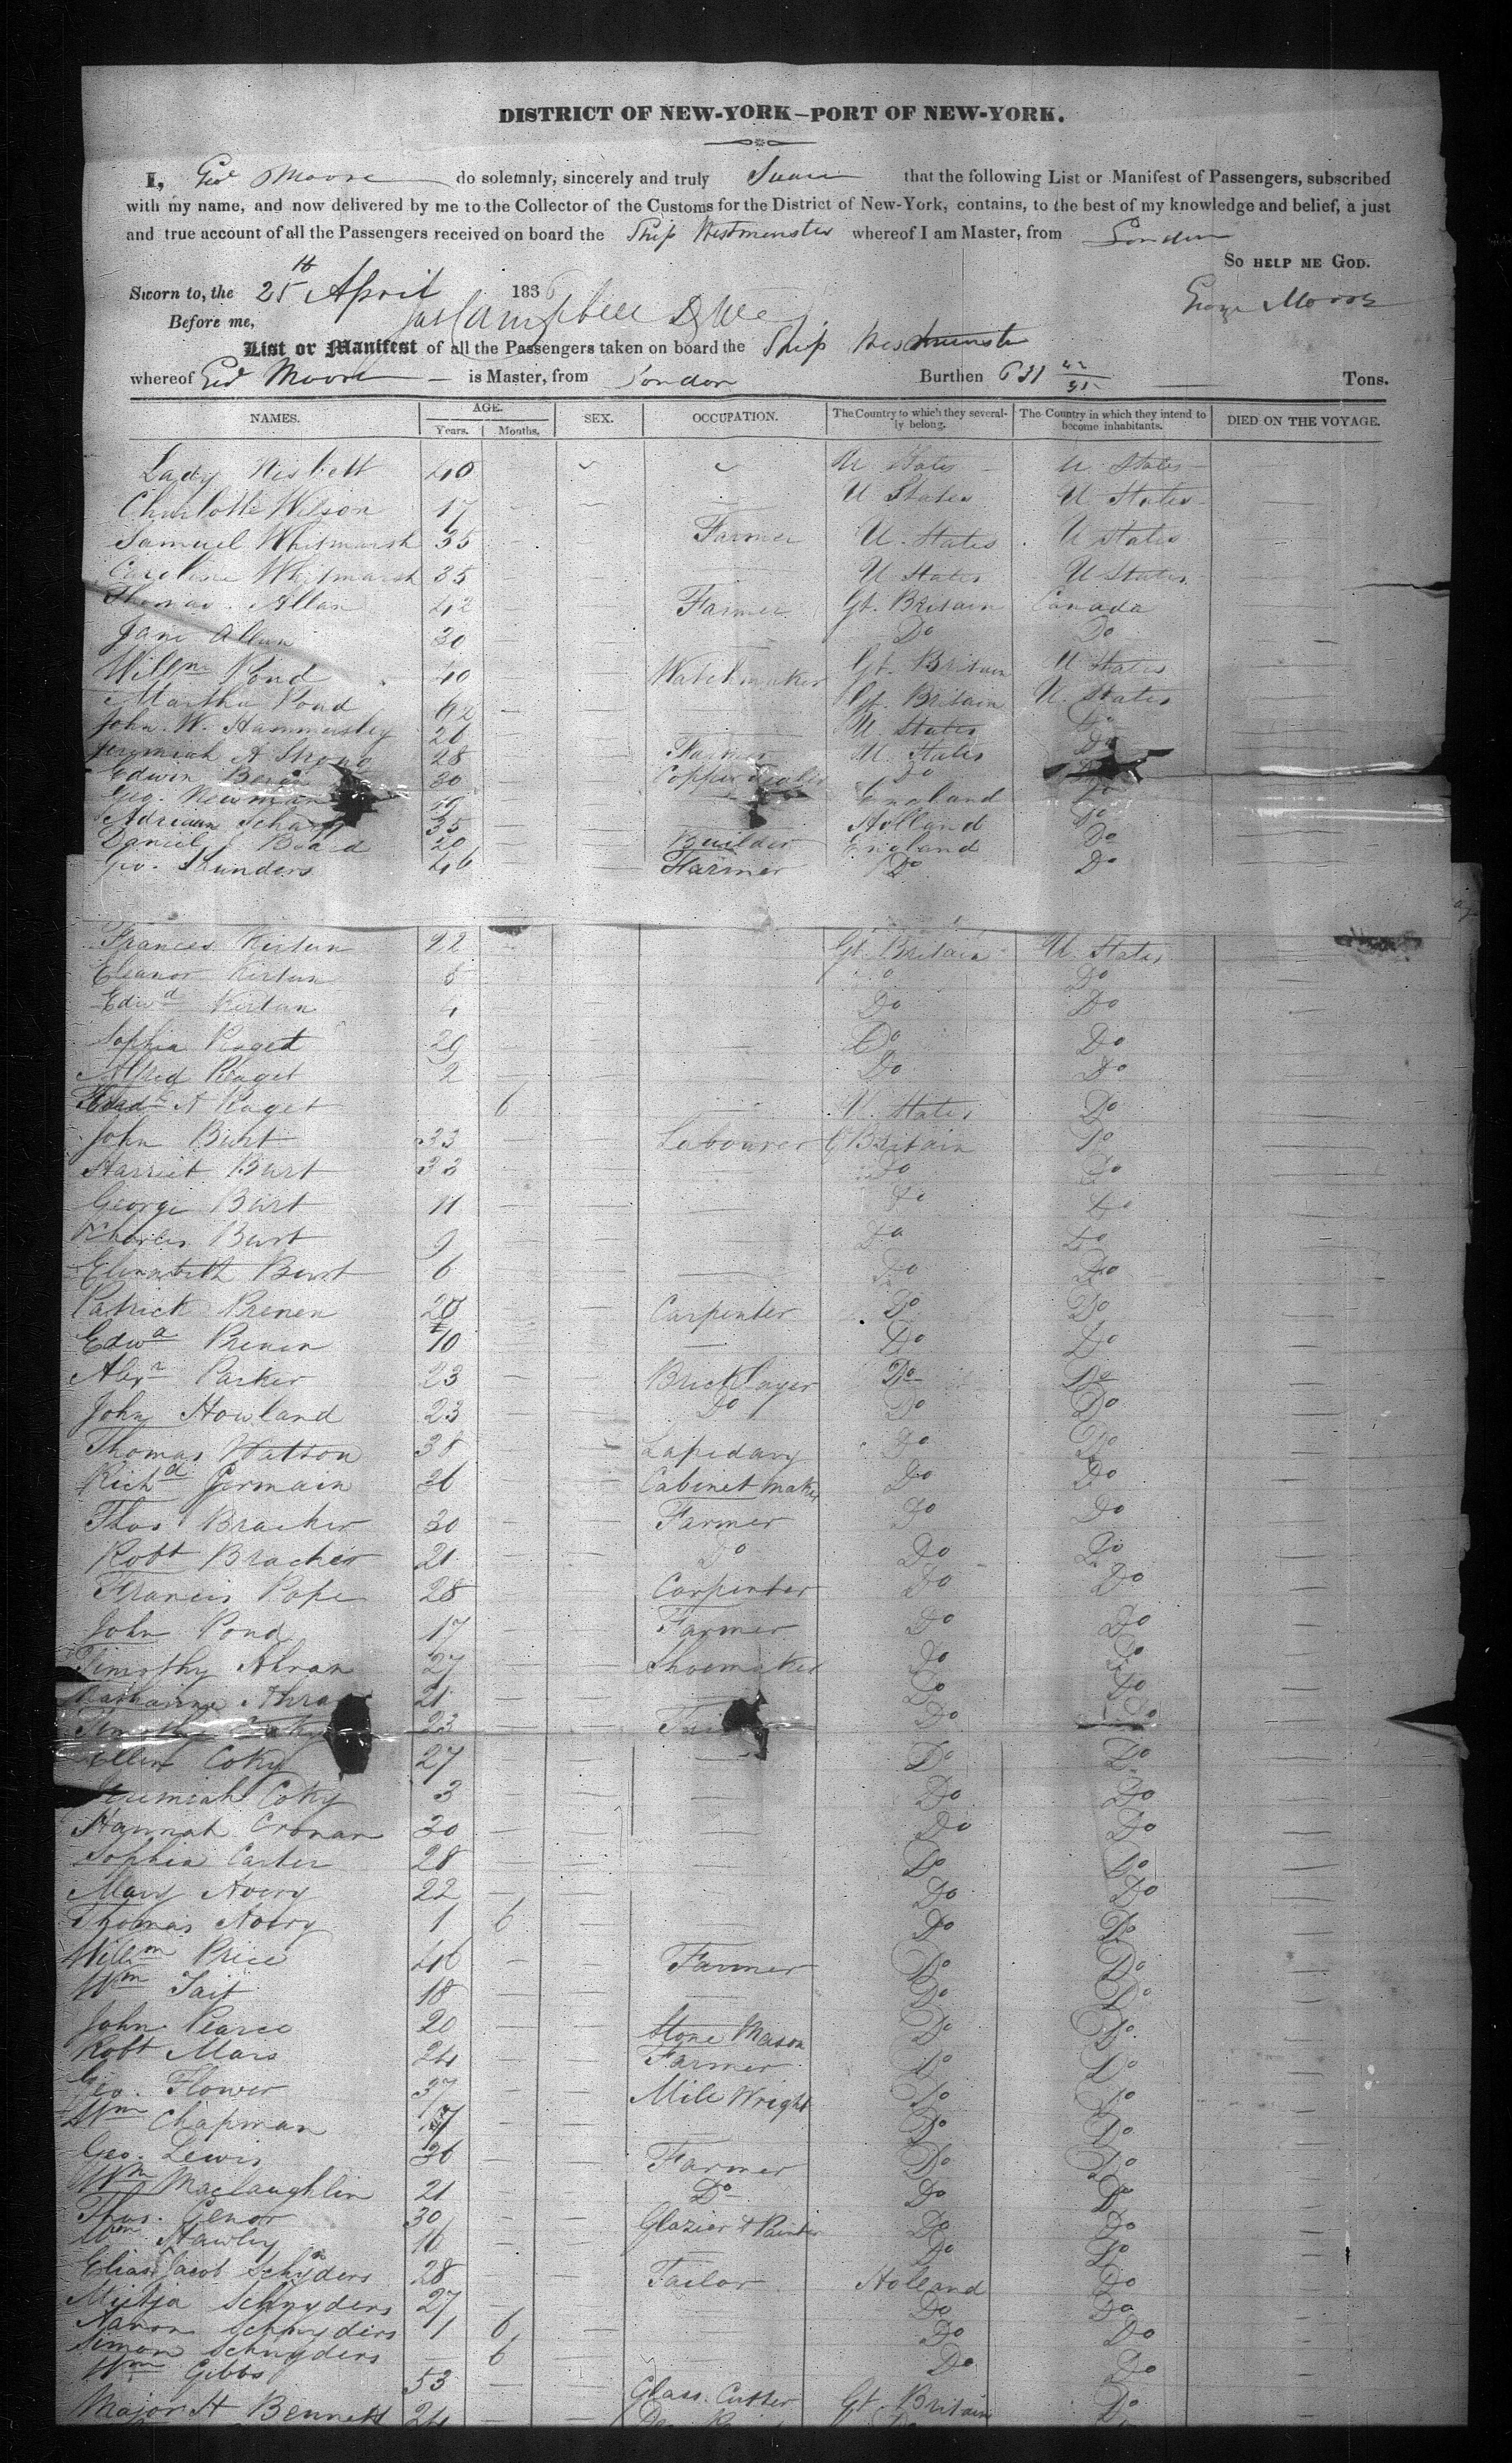 DISTRICT OF NEW-YORK—PORT OF NEW-YORK.
I, Geo Moore do solemnly, sincerely and truly Swear that the following List or Manifest of Passengers, subscribed
with my name, and now delivered by me to the Collector of the Customs for the District of New-York, contains, to the best of my knowledge and belief, a just
and true account of all the Passengers received on board the Ship Westminster whereof I am Master, from London
So HELP ME GOD.
Sworn to, the 25th April 1836 George Moore
Before me, Jas Campbell
List or Manifest of all the Passengers taken on board the Ship Westminster
whereof Geo Moore is Master, from London Burthen 631 Tons.
NAMES. AGE. SEX. OCCUPATION. The Country to which they severally belong. The Country in which they intend to become inhabitants. DIED ON THE VOYAGE.
Years. Months.
Lady Nisbett 40 U States U. States
Charlotte Wilson 17 U States U States
Samuel Whitmarsh 35 Farmer U. States U States
Caroline Whitmarsh 35 U States U States
Thomas Allan 42 Farmer Gt. Britain Canada
Jane Allan 30 Do Do
Willm Pond 40 Watchmaker Gt. Britain U States
Martha Pond 42 Gt. Britain U. States
John W. Hammersley 26 U. States Do
Jeremiah A Strong 28 Farmer U. States Do
Edwin 30 Copper Do
Geo. Newman 19 England Do
Adriaan 35 Holland Do
Daniel 20 Builder England Do
Geo. Saunders 46 Farmer Do Do
Frances Kirtun 22 Gt. Britain U. States
Eleanor Kirtun 8 Do Do
Edwd Kirtun 4 Do Do
Sophia Paget 29 Do Do
Alfred Paget 2 Do Do
Fredk A Paget 6 U. States Do
John Burt 33 Labourer G Britain Do
Harriet Burt 33 Do Do
George Burt 11 Do Do
Charles Burt 9 Do Do
Elizabeth Burt 6 Do Do
Patrick Brenen 20 Carpenter Do Do
Edwd Brenen 10 Do Do
Alexr Parker 23 Bricklayer Do Do
John Howland 23 Do Do Do
Thomas Watson 38 Lapidary Do Do
Richd Germain 26 Cabinet maker Do Do
Thos Bracher 30 Farmer Do Do
Robt Bracher 21 Do Do Do
Francis Pope 28 Carpenter Do Do
John Pond 17 Farmer Do Do
Timothy Ahran 27 Shoemaker Do Do
Catharine Ahran 21 Do Do
Timothy 23 Do Do
Ellen Coky 27 Do Do
Jeremiah Coky 3 Do Do
Hannah Cronan 30 Do Do
Sophia Carter 28 Do Do
Mary Avery 22 Do Do
Thomas Avery 1 6 Do Do
Willm Price 46 Farmer Do Do
Wm Tait 18 Do Do
John Pearce 20 Stone Mason Do Do
Robt Mars 24 Farmer Do Do
Geo. Flower 37 Mill Wright Do Do
Wm Chapman 17 Do Do
Geo. Lewis 36 Farmer Do Do
Wm Maclaughlin 21 Do Do Do
Thos. Genor 30 Glazier & Painter Do Do
Wm Hawley 16 Do Do
Elias Jacob Schnyders 28 Tailor Holland Do
Mietja Schnyders 27 Do Do
Aaron Schnyders 1 6 Do Do
Simon Schnyders 6 Do Do
Wm Gibbs 53 Glass Cutter Gt. Britain Do
Major H Bennett 24 Do